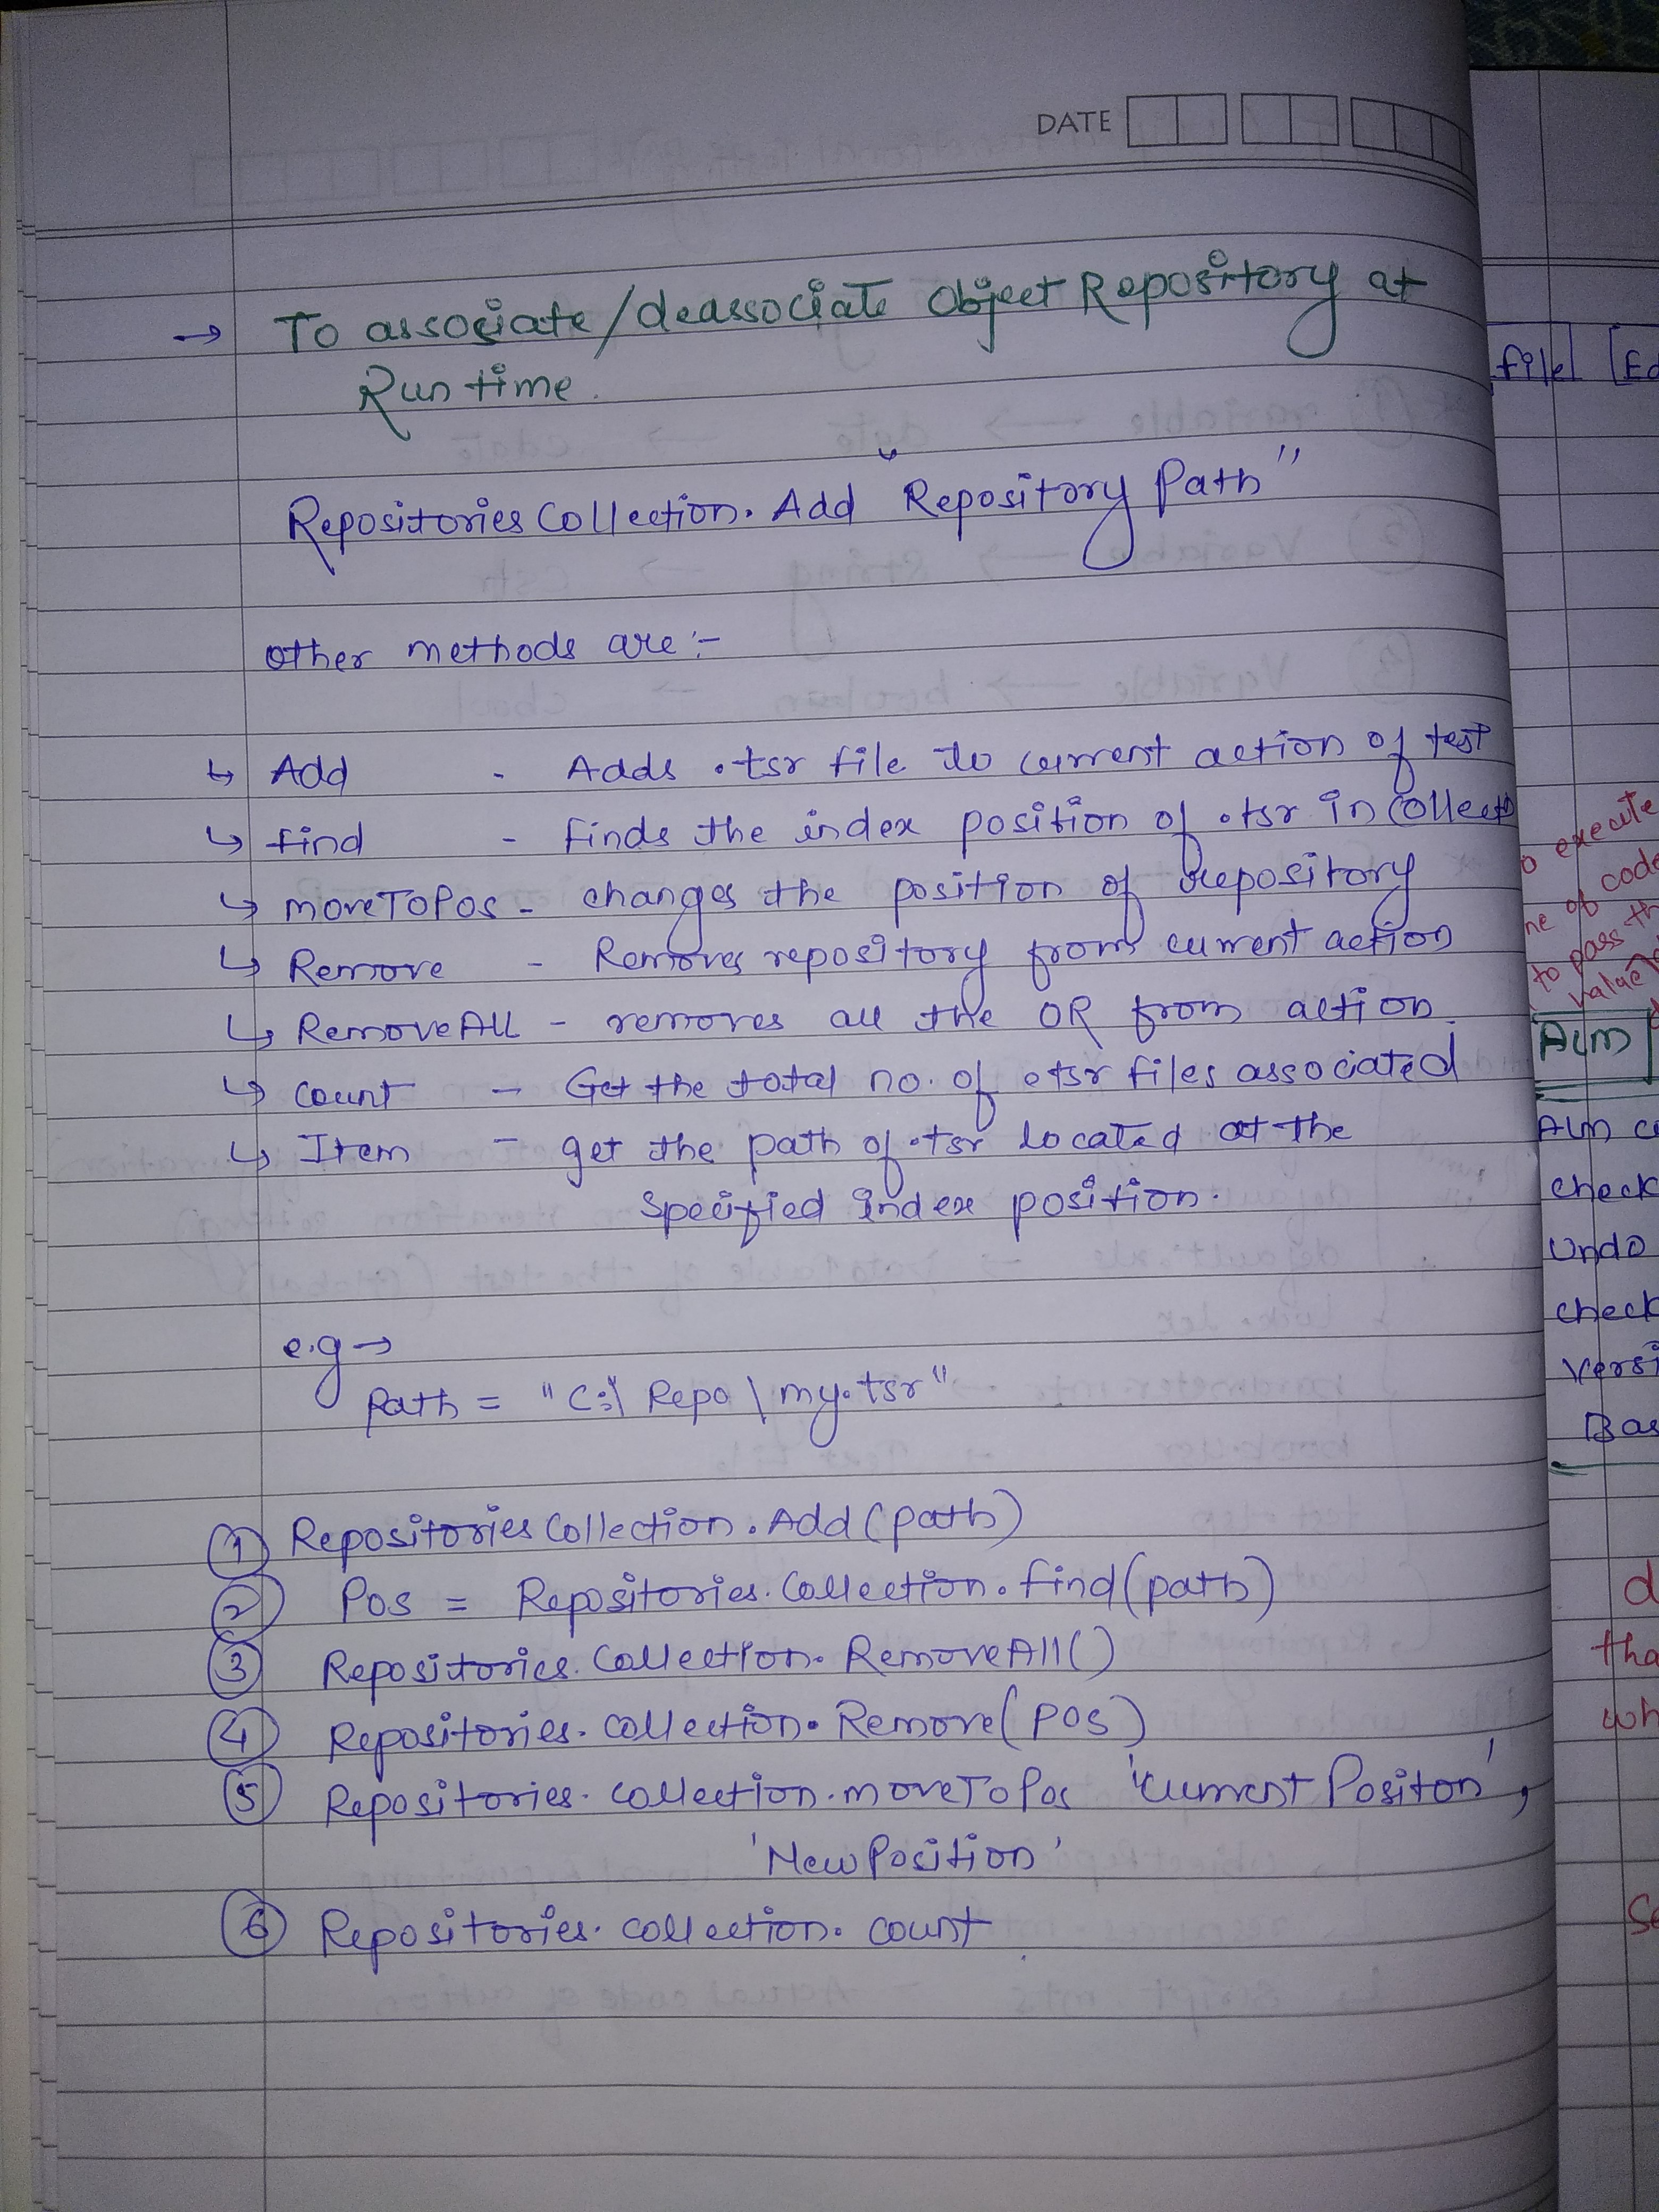 DATE
→ To associate/deassociate Object Repository at
Run time.
RepositoriesCollection. Add "Repository Path"
other methods are :-
↳ Add - Adds .tsr file to current action of test
↳ find - finds the index position of .tsr in collect
↳ moveToPos - changes the position of repository
↳ Remove - Removes repository from current action
↳ RemoveAll - removes all the OR from action.
↳ count - Get the total no. of .tsr files associated
↳ Item - get the path of .tsr located at the
specified index position.
e.g →
Path = "C:\ Repo \ my.tsr"
① RepositoriesCollection.Add(path)
② Pos = Repositories.Collection.find(path)
③ Repositories.Collection.RemoveAll()
④ Repositories.collection.Remove(pos)
⑤ Repositories.collection.moveToPos 'current Positon',
'New Position'
⑥ Repositories.collection.count
file
o execute
ne of code
to pass th
value
ALM
ALM c
check
Undo
check
Versi
Bas
d
tha
wh